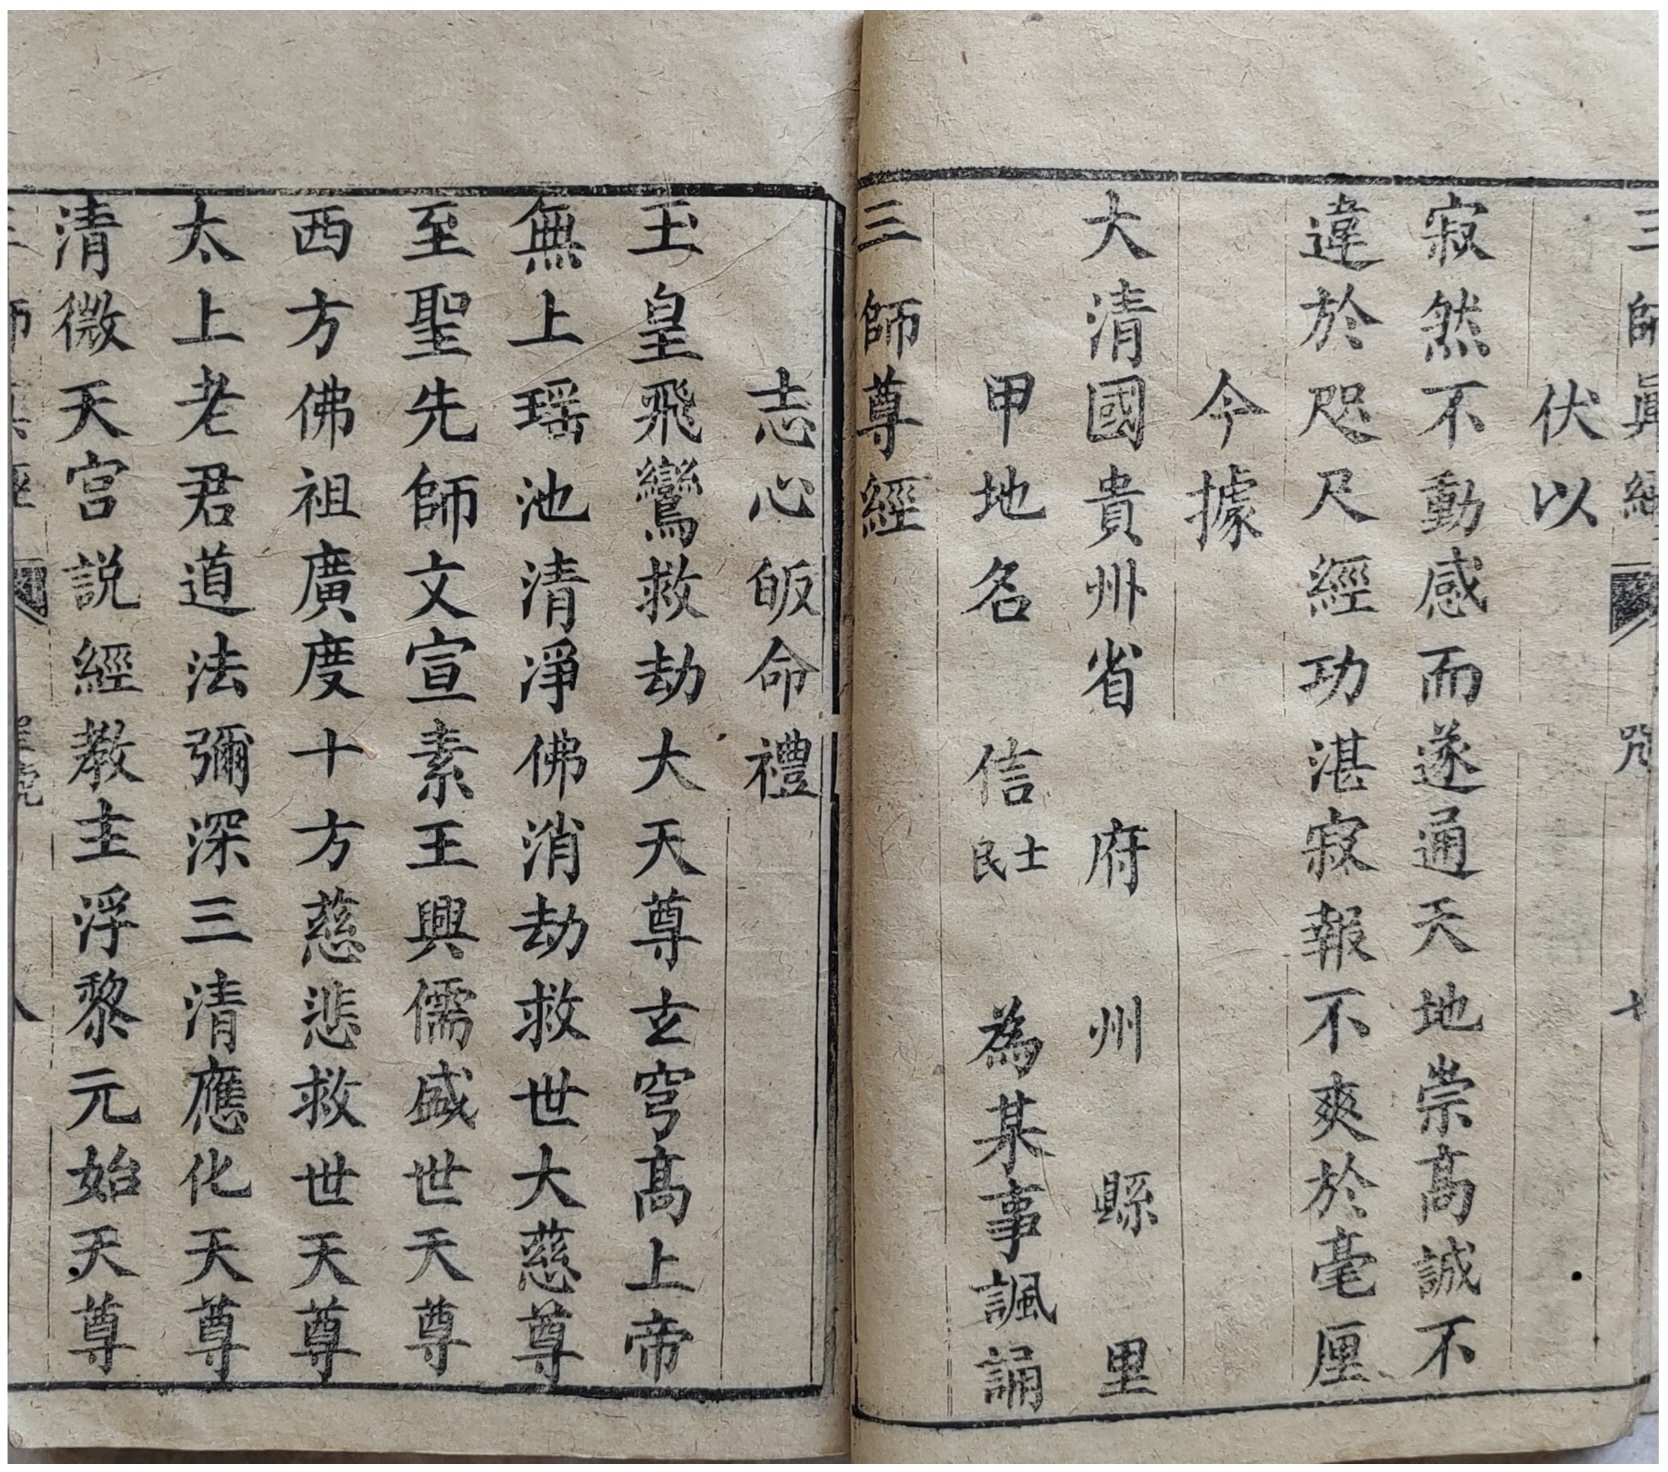 三師眞經 咒 七
伏以
寂然不動感而遂通天地崇高誠不
違於咫尺經功湛寂報不爽於毫厘
今據
大清國貴州省 府 州 縣 里
甲地名 信士民 為某事諷誦
三師尊經
志心皈命禮
玉皇飛鸞救劫大天尊玄穹高上帝
無上瑶池清凈佛消劫救世大慈尊
至聖先師文宣素王興儒盛世天尊
西方佛祖廣度十方慈悲救世天尊
太上老君道法彌深三清應化天尊
清微天宫説經教主浮黎元始天尊
三師眞經 八